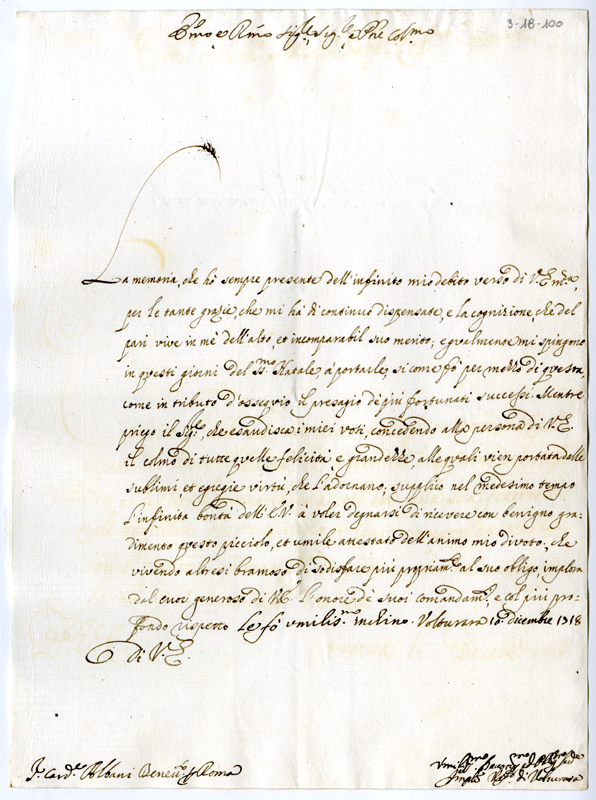 3-18-100
Em̃o, e Rm̃o Sig.re Sig.re e Prñe Col.mo
La memoria, che hò sempre presente dell'infinito mio debito verso di V.E. m̃a,
per le tante grazie, che mi hà di continuo dispensate, e la cognizione che del
pari vive in mè dell'alto, et incomparabil suo merito; egualmente mi spingono
in questi giorni del S.mo Natale, à portarle, si come fò per mezzo di questa,
come in tributo d'ossequio il presagio de più fortunati successi. Mentre
priego il Sig.re, che esaudisca i miei voti, concedendo alla persona di V.E.
il colmo di tutte quelle felicità, e grandezze, alle quali vien portata dalle
sublimi, et egregie virtù, che L'adornano, supplico nel medesimo tempo
L'infinita bontà dell'E.V. à voler degnarsi di ricevere con benigno gra-
dimento questo picciolo, et umile attestato dell'animo mio divoto, che
vivendo altresì bramoso di sodisfare più pienam.te al suo obligo, implora
dal cuor generoso di V.E. L'onore de suoi comandam.ti, e col più pro-
fondo rispetto Le fò umilis.mo inchino. Volturara 10 dicembre 1718
Di V.E.
S.r Card.le Albani Benev.to Roma
Umilis.mo
di Volturara